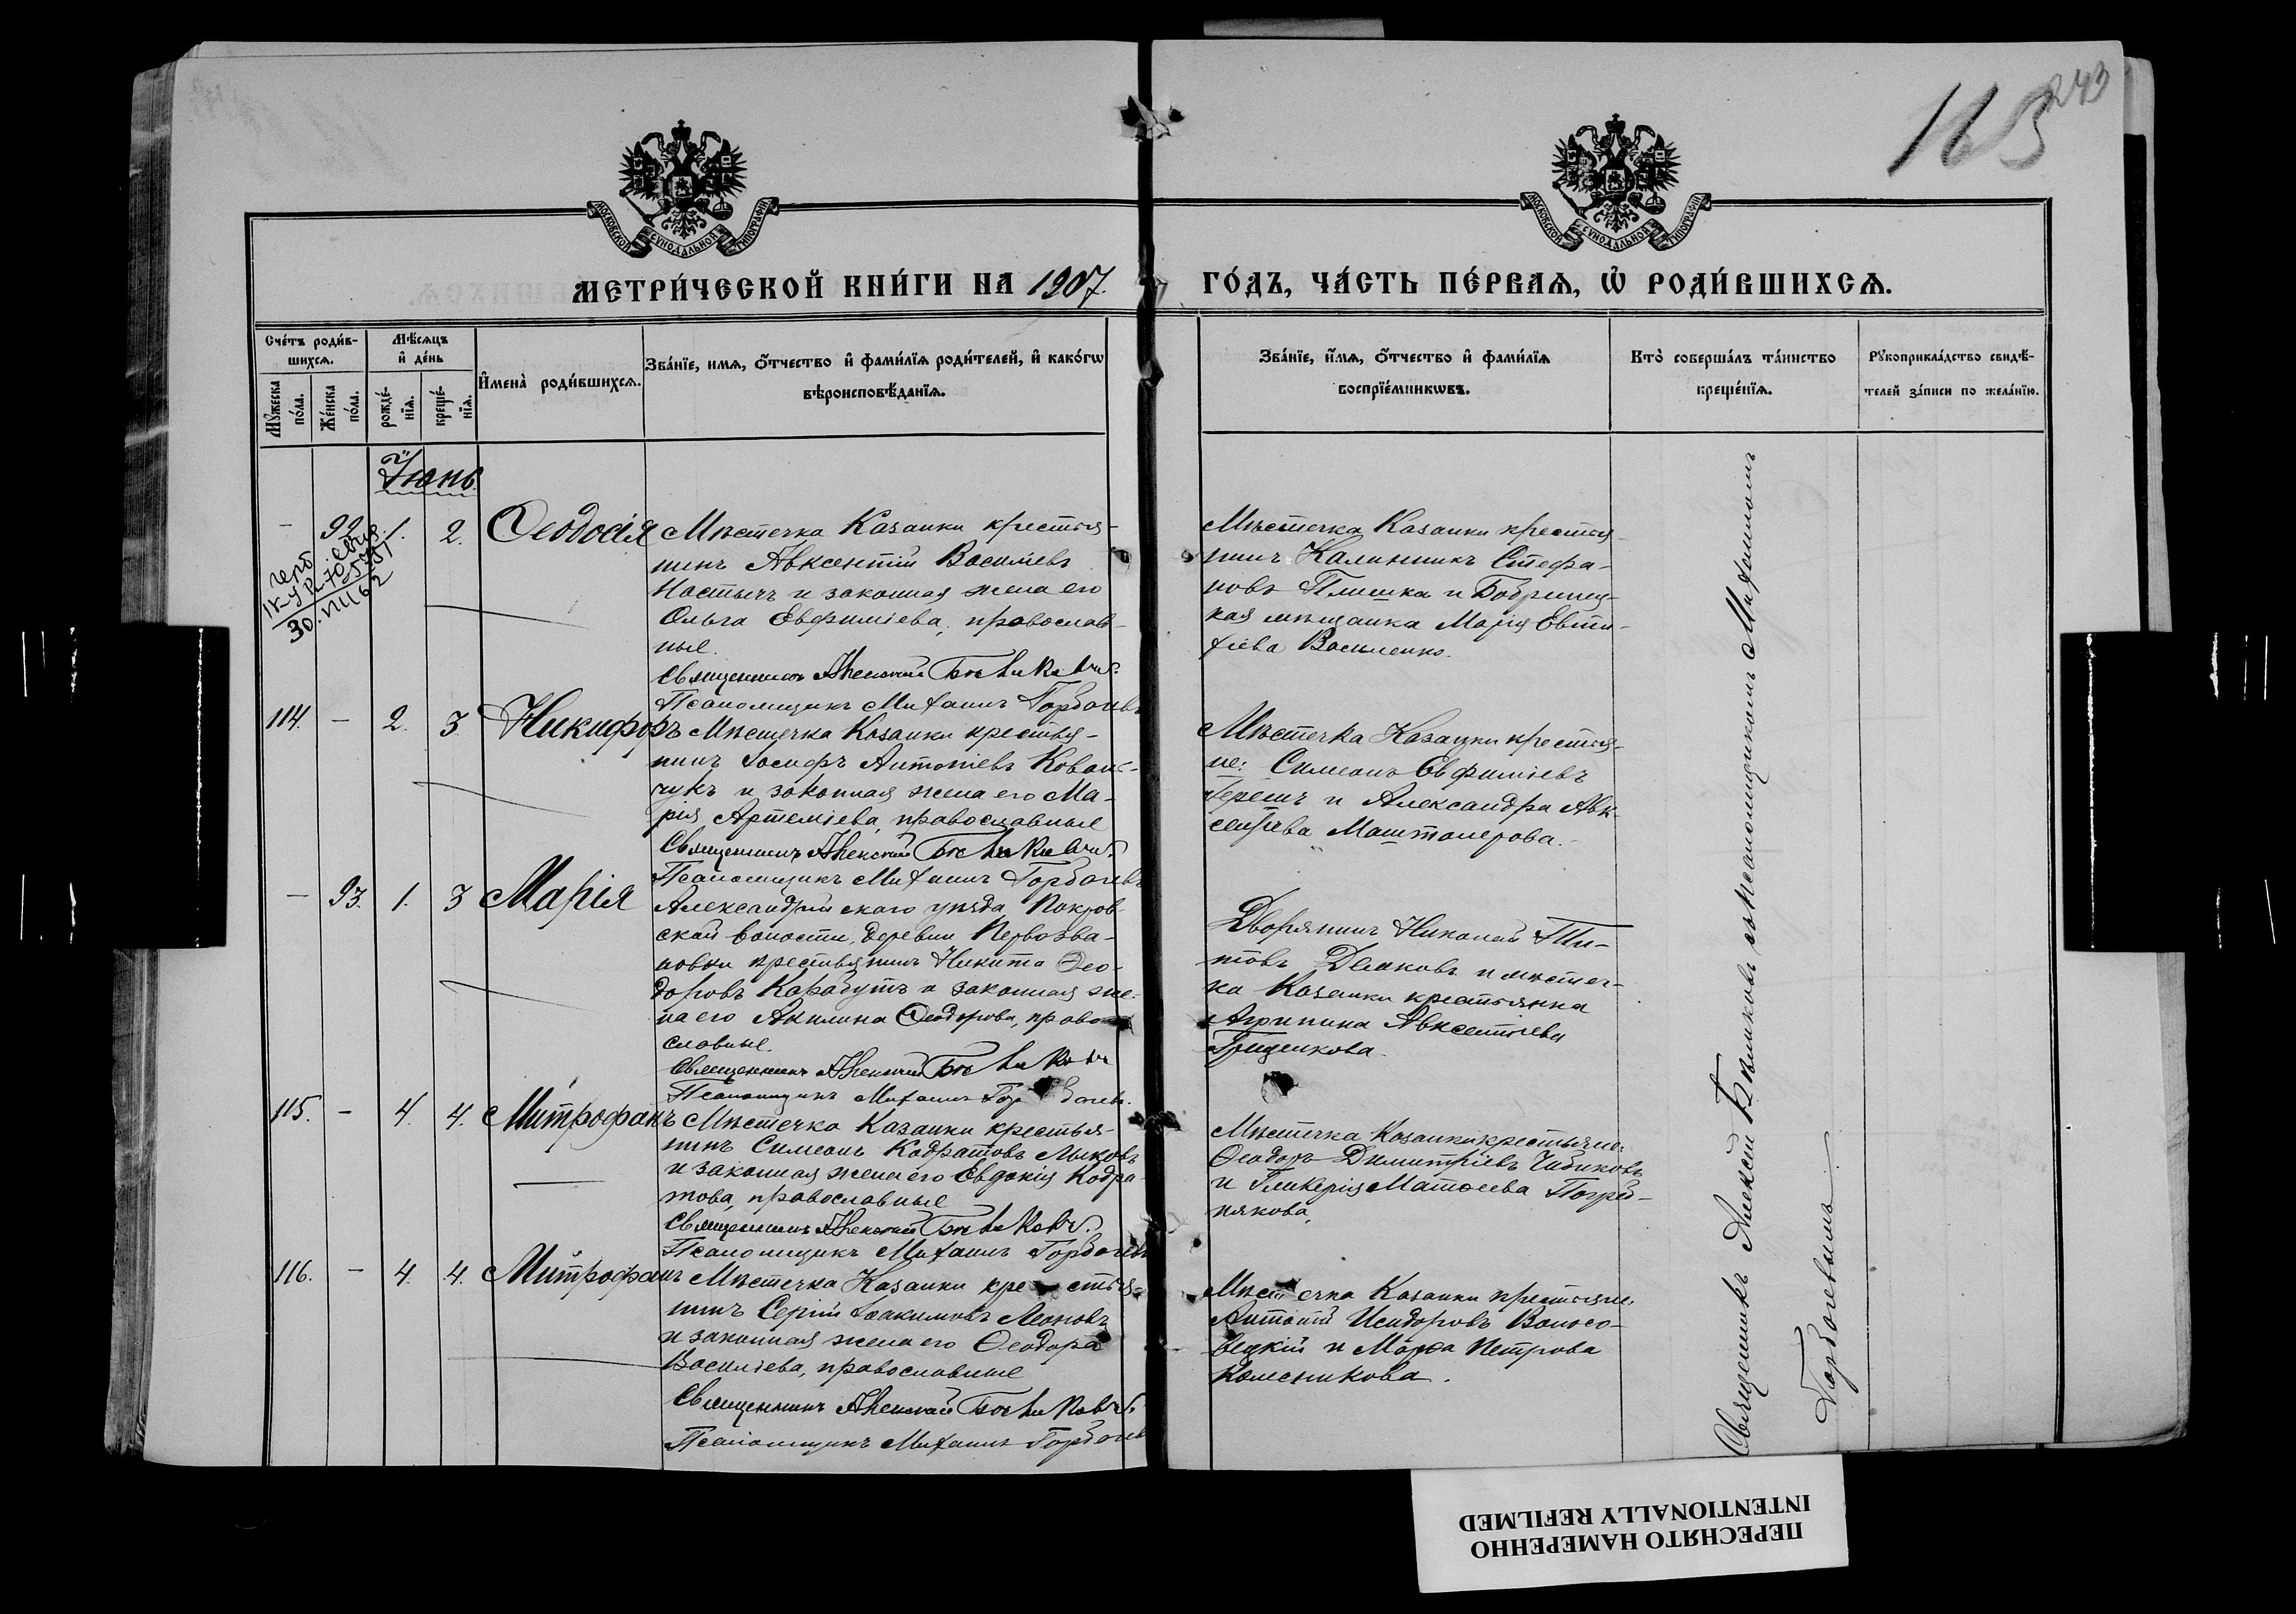 163
243
МОСКОВСКОЙ СѴНОДАЛЬНОЙ ТИПОГРАФІИ
МОСКОВСКОЙ СѴНОДАЛЬНОЙ ТИПОГРАФІИ
МЕТРИ́ЧЕСКОЙ КНИ́ГИ НА 1907.
ГО́ДЪ, ЧА́СТЬ ПЕ́РВАѦ, Ѡ҆ РОДИ́ВШИХСѦ.
Сче́тъ роди́в-
шихсѧ.
Мꙋ́жеска по́ла.
Же́нска по́ла.
Мѣ́сѧцъ
и҆ де́нь
рожде́-
нїѧ.
креще́-
нїѧ.
И҆мена̀ роди́вшихсѧ.
Зва́нїе, имѧ, ѻ҆́тчество и҆ фами́лїѧ роди́телей, и҆ како́гѡ
вѣроисповѣ́данїѧ.
Зва́нїе, и҆́мѧ, ѻ҆́тчество и҆ фами́лїѧ
воспрїе́мникѡвъ.
Кто̀ соверша́лъ та́инство
креще́нїѧ.
Рꙋкоприкла́дство свидѣ́-
телей за́писи по жела́нїю.
Іюнь.
– 92. 1. 2. Ѳеодосія
Мѣстечка Казанки крестья-
нинъ Авксентій Василіевъ
и законная жена его
Ольга Евфиміева, православ-
ные.
Священникъ Алексій Бѣликовъ.
Псаломщикъ Михаилъ Горбачевъ
Мѣстечка Казанки крестья-
нинъ Калинникъ Стефа-
новъ Плишка и Бобринец-
кая мѣщанка Марія Евти-
хіева Василенко.
30.VIII 62
114. – 2. 3. Никифоръ
Мѣстечка Казанки крестья-
нинъ Іосифъ Антоніевъ Коваль-
чукъ и законная жена его Ма-
рія Артеміева, православные
Священникъ Алексій Бѣликовъ.
Псаломщикъ Михаилъ Горбачевъ
Мѣстечка Казанки крестья-
не: Симеонъ Евфиміевъ
и Александра Авк-
сентіева Машталерова.
– 93. 1. 3 Марія
Александрійскаго уѣзда Покров-
ской волости, деревни Первозва-
новки крестьянинъ Никита Ѳео-
доровъ Карабутъ и законная же-
на его Акилина Ѳеодорова, право-
славные.
Священникъ Алексій Бѣликовъ
Псаломщикъ Михаилъ Горбачевъ.
Дворянинъ Николай Ти-
товъ Деяковъ и мѣстеч-
ка Казанки крестьянка
Агрипина Авксентіева
Грищенкова.
115. – 4. 4. Митрофанъ
Мѣстечка Казанки крестья-
нинъ Симеонъ Кодратовъ Лыковъ
и законная жена его Евдокія Кодра-
това, православные
Священникъ Алексій Бѣликовъ.
Псаломщикъ Михаилъ Горбачевъ
Мѣстечка Казанки крестьяне:
Ѳеодоръ Димитріевъ Чибиковъ
и Гликерія Матѳеева Погреб-
някова.
116. – 4. 4. Митрофанъ
Мѣстечка Казанки крестья-
нинъ Сергій Іоакимовъ Леоновъ
и законная жена его Ѳеодора
Василіева, православные
Священникъ Алексій Бѣликовъ.
Псаломщикъ Михаилъ Горбачевъ
Мѣстечка Казанки крестьяне:
Антоній Исидоровъ Волосо-
вецкій и Марѳа Петрова
Колесникова.
Священникъ Алексій Бѣликовъ съ псаломщикомъ Михаиломъ
Горбачевымъ
ПЕРЕСНЯТО НАМЕРЕННО
INTENTIONALLY REFILMED